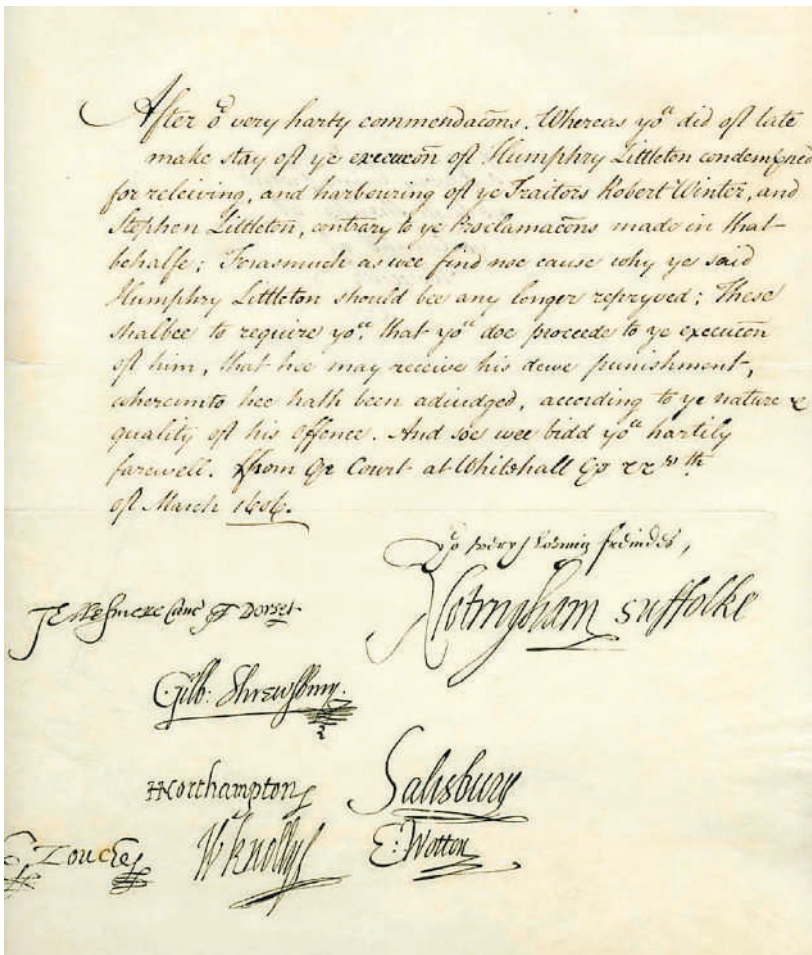 After oʳ very harty commendacõns. Whereas yoᵘ did oft late
make stay oft ye execucõn oft Humphry Littleton condempned
for releiving, and harbouring oft ye Traitors Robert Winter, and
Stephen Littleton, contrary to ye Proclamacõns made in that
behalfe; Forasmuch as wee find noe cause why ye said
Humphry Littleton should bee any longer repryved; These
shalbee to require yoᵘ, that yoᵘ doe proceede to ye execucõn
oft him, that hee may receive his dewe punishment,
whereunto hee hath been adiudged, according to ye nature &
quality oft his offence. And soe wee bidd yoᵘ hartily
farewell. ffrom Court at Whitehall
oft March 1606.
Yoʳ very loving freindes,
T Ellesmere Canc T Dorset
Notingham Suffolke
Gilb: Shrewsbury.
H Northampton Salisbury
E Zouche W Knollys E: Wotton